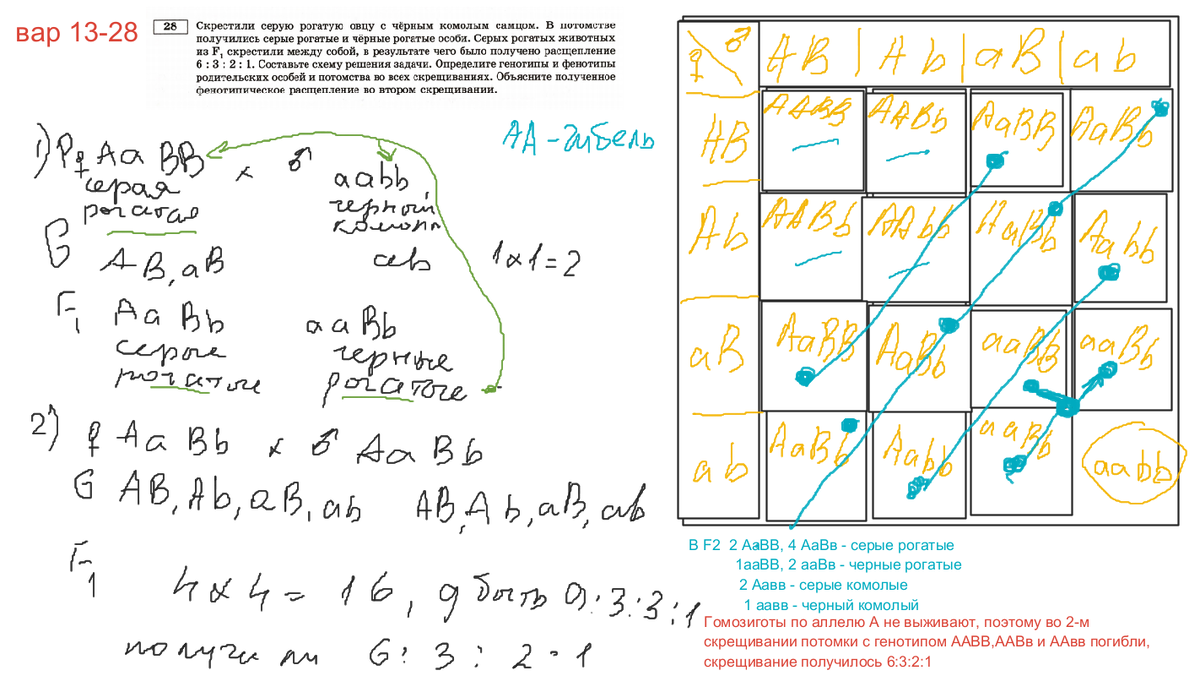 вар 13-28
28 Скрестили серую рогатую овцу с чёрным комолым самцом. В потомстве
получились серые рогатые и чёрные рогатые особи. Серых рогатых животных
из F₁ скрестили между собой, в результате чего было получено расщепление
6 : 3 : 2 : 1. Составьте схему решения задачи. Определите генотипы и фенотипы
родительских особей и потомства во всех скрещиваниях. Объясните полученное
фенотипическое расщепление во втором скрещивании.
АА - гибель
1) P ♀ Aa BB × ♂ aabb,
серая черный
рогатая комолы
G AB, aB ab 1×1=2
F1 Aa Bb aaBb
серые черные
рогатые рогатые
2) ♀ Aa Bb × ♂ AaBb
G AB, Ab, aB, ab AB, Ab, aB, ab
F1
4×4=16, д быть 9:3:3:1
получили 6:3:2:1
♀ ♂ AB | Ab | aB | ab
AB AABB AABb AaBB AaBb
Ab AABb AAbb AaBb Aabb
aB AaBB AaBb aaBB aaBb
ab AaBb Aabb aaBb aabb
В F2 2 АаВВ, 4 АаВв - серые рогатые
1ааВВ, 2 ааВв - черные рогатые
2 Аавв - серые комолые
1 аавв - черный комолый
Гомозиготы по аллелю А не выживают, поэтому во 2-м
скрещивании потомки с генотипом ААВВ,ААВв и ААвв погибли,
скрещивание получилось 6:3:2:1